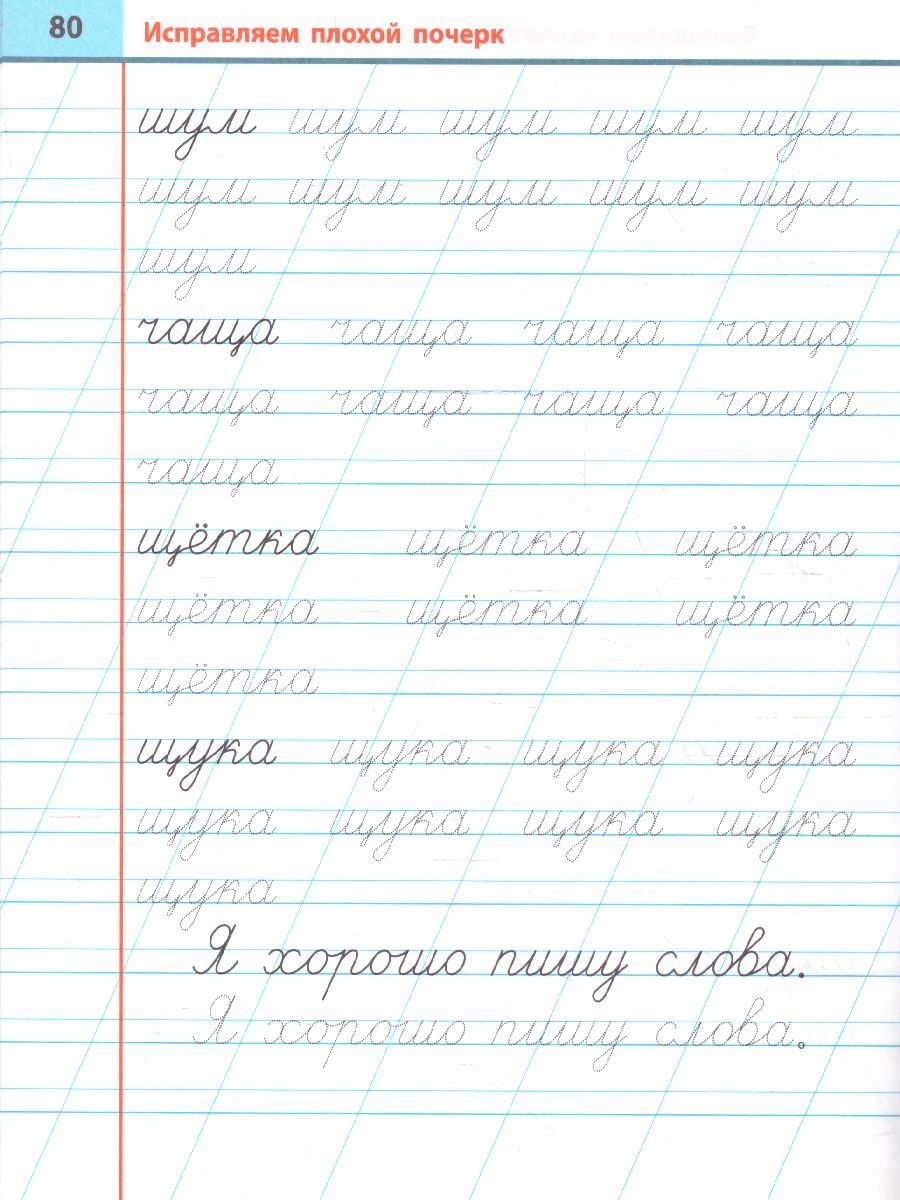 80 Исправляем плохой почерк
шум шум шум шум шум
шум шум шум шум шум
шум
чаща чаща чаща чаща
чаща чаща чаща чаща
чаща
щётка щётка щётка
щётка щётка щётка
щётка
щука щука щука щука
щука щука щука щука
щука
Я хорошо пишу слова.
Я хорошо пишу слова.